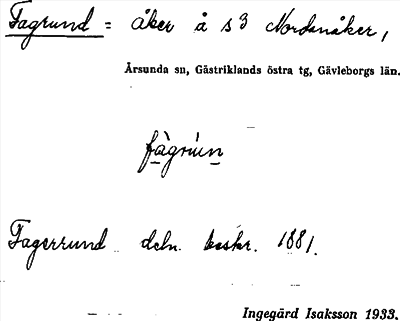 Fagrund = åker å s3 Nordanåker,
Årsunda sn, Gästriklands östra tg, Gävleborgs län.
fàgrún
Fagerrund deln. beskr. 1881.
Ingegärd Isaksson 1933.